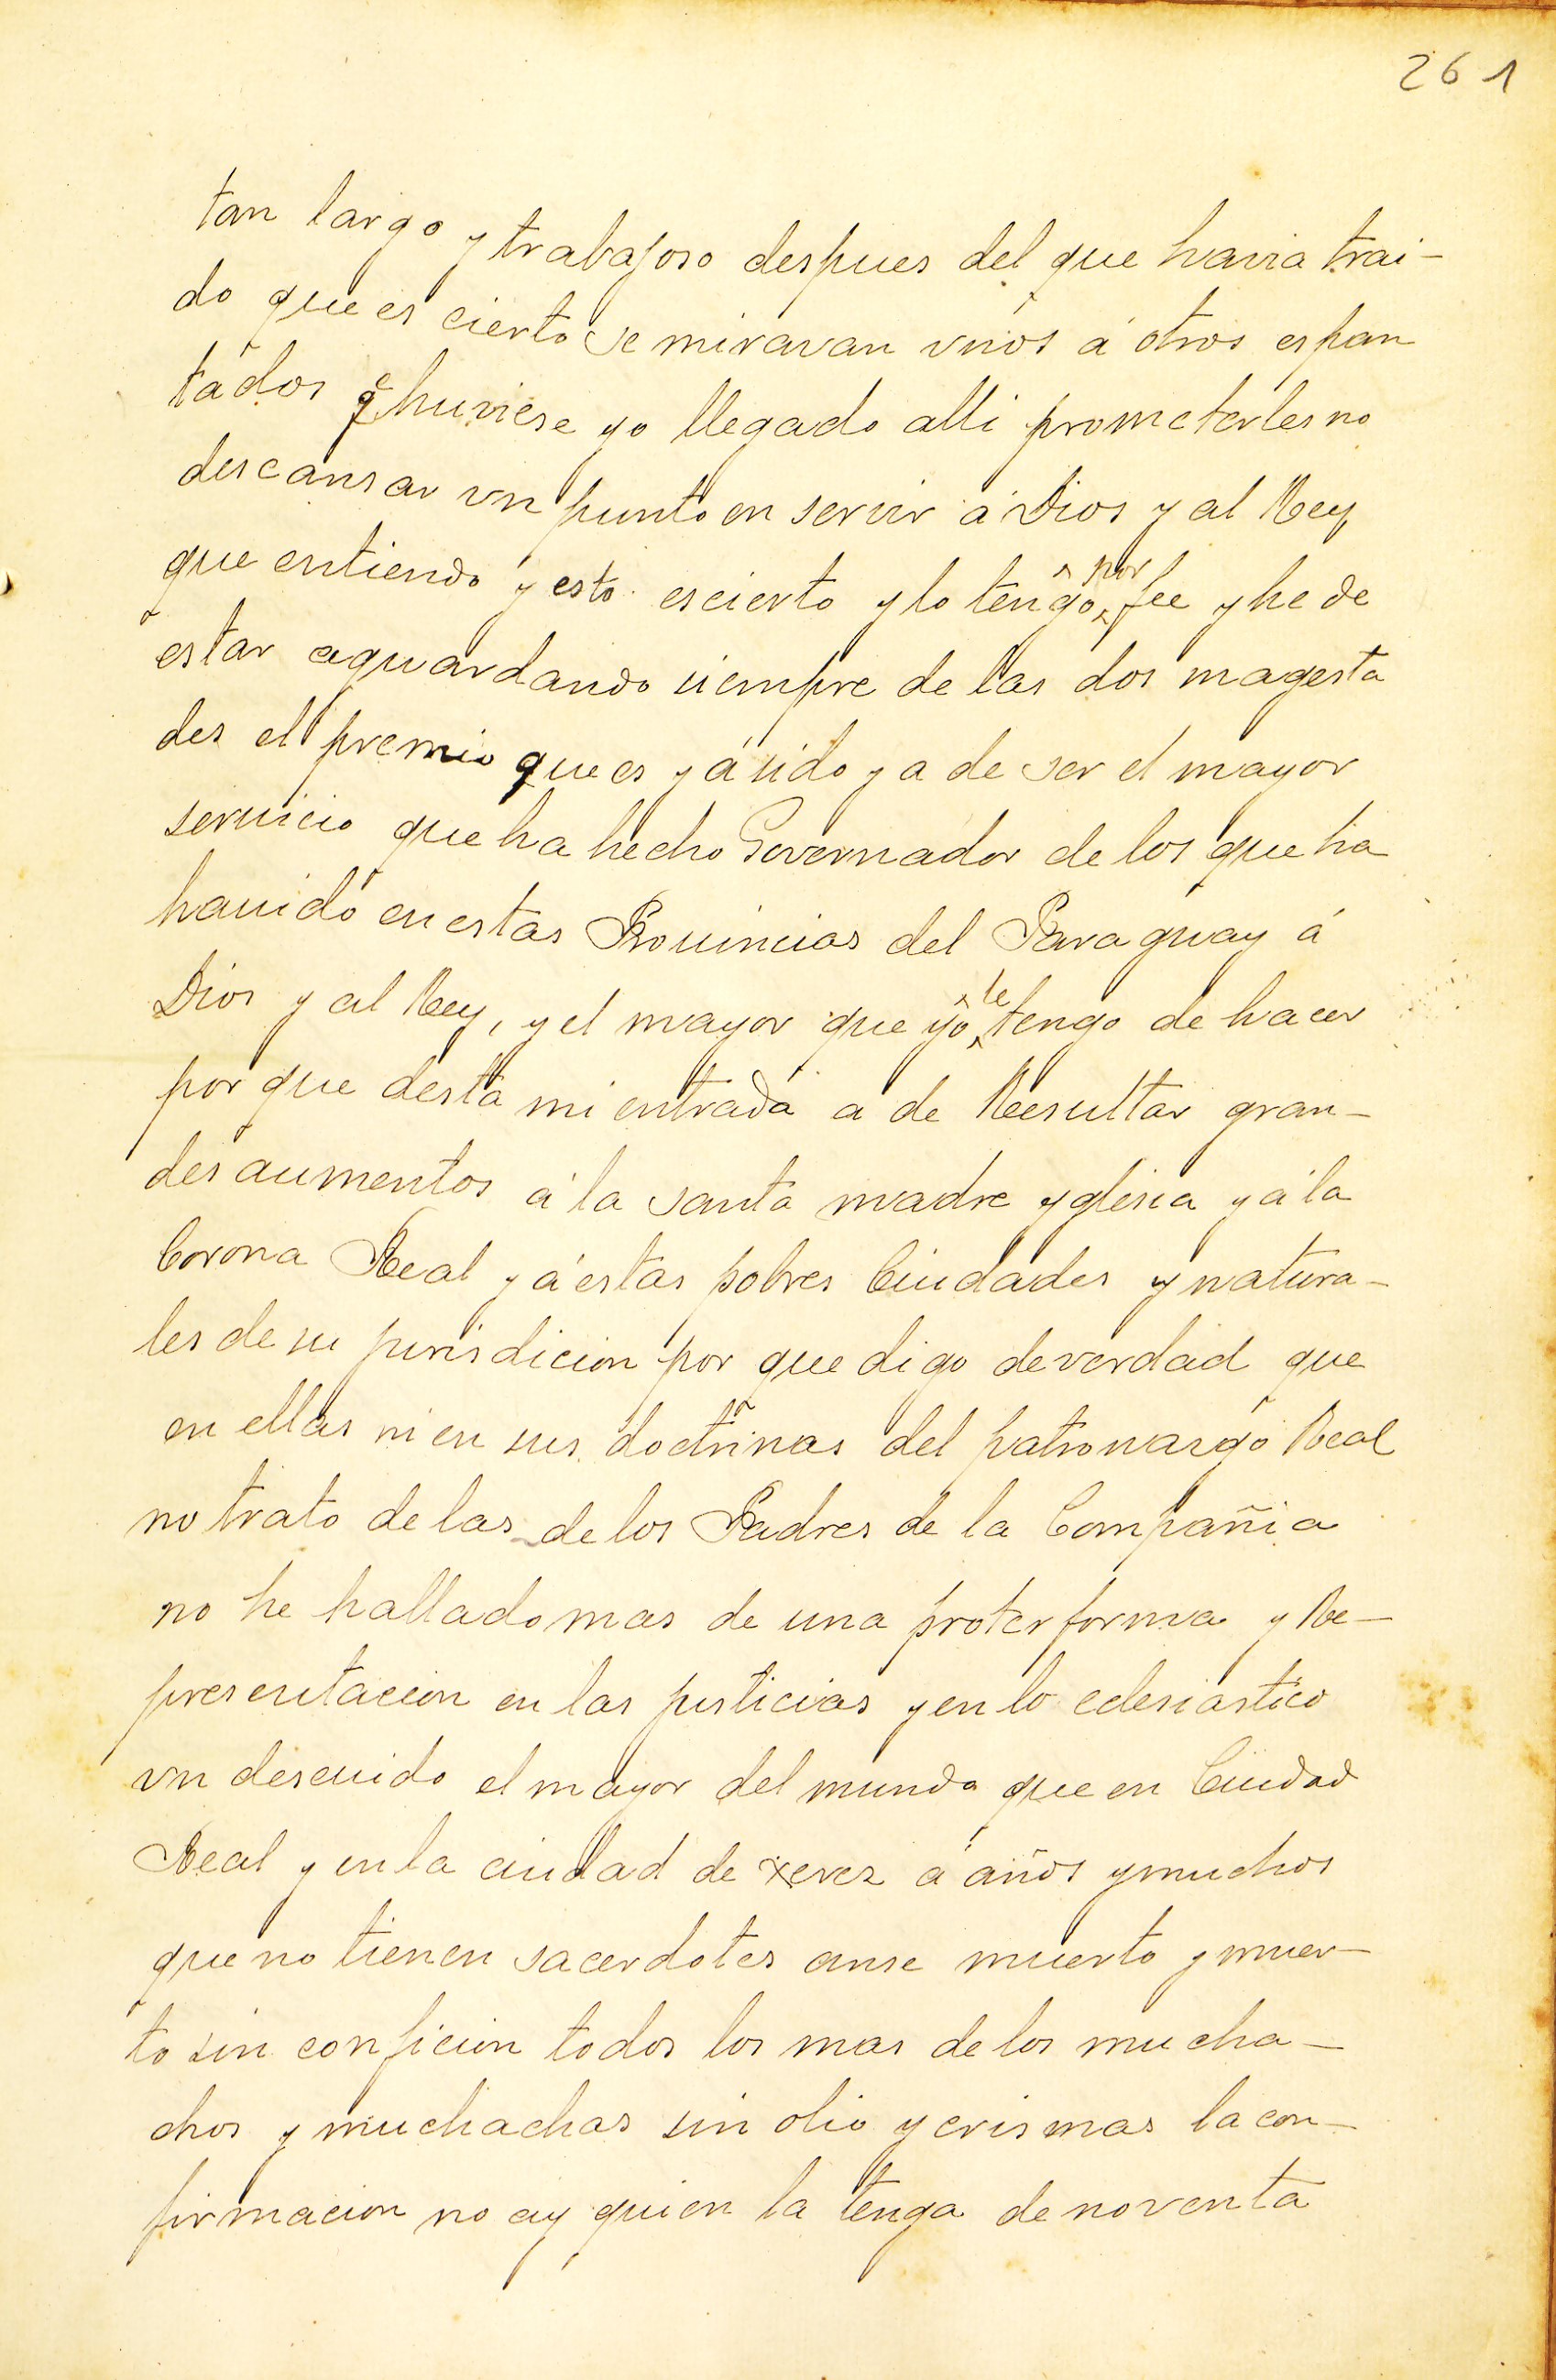 261
tan largo y trabajoso despues del que havia trai-
do que es cierto se miravan vnos á otros espan
tados q̃ huviese yo llegado alli prometerles no
descansar vn punto en servir á Dios y al Rey
que entiendo y esto es cierto y lo tengo por fee y he de
estar aguardando siempre de las dos magesta
des el premio que es y á sido y a de ser el mayor
seruicio que ha hecho Governador de los que ha
hauido en estas Prouincias del Paraguay á
Dios y al Rey, y el mayor que yo le tengo de hacer
por que desta mi entrada a de Reesultar gran-
des aumentos á la santa madre yglesia y á la
Corona Real y á estas pobres Ciudades y natura-
les de su jurisdicion por que digo de verdad que
en ellas ni en sus doctrinas del patronazgo Real
no trato de las de los Padres de la Compañia
no he hallado mas de una proter forma y Re-
presentacion en las justicias y en lo eclesiastico
vn descuido el mayor del mundo que en Ciudad
Real y en la ciudad de xerez á años y muchos
que no tienen sacerdotes anse muerto y muer-
to sin conficion todos los mas de los mucha-
chos y muchachas sin olio y crismas la con-
firmacion no ay quien la tenga de noventa